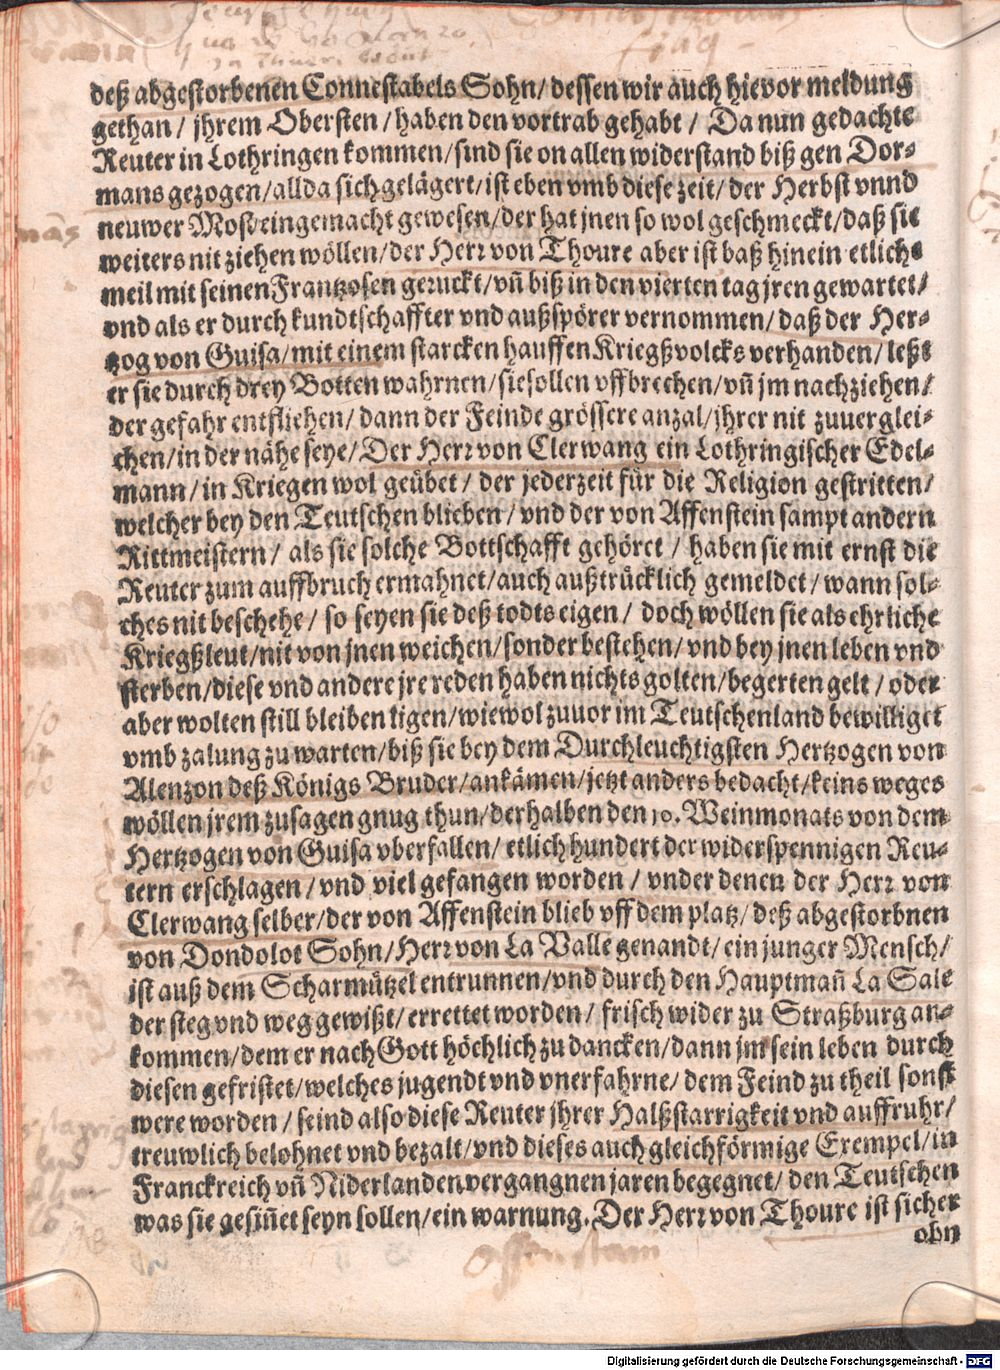 deß abgestorbenen Connestabels Sohn/ dessen wir auch hievor meldung
gethan/ jhrem Obersten/ haben den vortrab gehabt/ Da nun gedachte
Reuter in Lothringen kommen/ sind sie on allen widerstand biß gen Dor-
mans gezogen/ allda sich gelägert/ ist eben vmb diese zeit/ der Herbst vnnd
neuwer Most eingemacht gewesen/ der hat jnen so wol geschmeckt/ daß sie
weiters nit ziehen wöllen/ der Herr von Thoure aber ist baß hinein etliche
meil mit seinen Frantzosen geruckt/ vn̄ biß in den vierten tag jren gewartet/
vnd als er durch kundtschaffter vnd außspörer vernommen/ daß der Her-
tzog von Guisa/ mit einem starcken hauffen Kriegßvolcks verhanden/ leßt
er sie durch drey Botten wahrnen/ sie sollen vffbrechen/ vn̄ jm nachziehen/
der gefahr entfliehen/ dann der Feinde grössere anzal/ jhrer nit zuuerglei-
chen/ in der nähe seye/ Der Herr von Clerwang ein Lothringischer Edel-
mann/ in Kriegen wol geübet/ der jederzeit für die Religion gestritten/
welcher bey den Teutschen blieben/ vnd der von Affenstein sampt andern
Rittmeistern/ als sie solche Bottschafft gehöret/ haben sie mit ernst die
Reuter zum auffbruch ermahnet/ auch außtrücklich gemeldet/ wann sol-
ches nit beschehe/ so seyen sie deß todts eigen/ doch wöllen sie als ehrliche
Kriegßleut/ nit von jnen weichen/ sonder bestehen/ vnd bey jnen leben vnd
sterben/ diese vnd andere jre reden haben nichts golten/ begerten gelt/ oder
aber wolten still bleiben ligen/ wiewol zuuor im Teutschenland bewilliget
vmb zalung zu warten/ biß sie bey dem Durchleuchtigsten Hertzogen von
Alenzon deß Königs Bruder/ ankämen/ jetzt anders bedacht/ keins weges
wöllen jrem zusagen gnug thun/ derhalben den 10. Weinmonats von dem
Hertzogen von Guisa vberfallen/ etlich hundert der widerspennigen Reu-
tern erschlagen/ vnd viel gefangen worden/ vnder denen der Herr von
Clerwang selber/ der von Affenstein blieb vff dem platz/ deß abgestorbnen
von Dondolot Sohn/ Herr von La Valle genandt/ ein junger Mensch/
ist auß dem Scharmützel entrunnen/ vnd durch den Hauptman̄ La Sale
der steg vnd weg gewißt/ errettet worden/ frisch wider zu Straßburg an-
kommen/ dem er nach Gott höchlich zu dancken/ dann jm sein leben durch
diesen gefristet/ welches jugendt vnd vnerfahrne/ dem Feind zu theil sonst
were worden/ seind also diese Reuter jhrer Halßstarrigkeit vnd auffruhr/
treuwlich belohnet vnd bezalt/ vnd dieses auch gleichförmige Exempel/ in
Franckreich vn̄ Niderlanden vergangnen jaren begegnet/ den Teutschen
was sie gesin̄et seyn sollen/ ein warnung. Der Herr von Thoure ist sicher
ohn
Affenstain
Digitalisierung gefördert durch die Deutsche Forschungsgemeinschaft - DFG